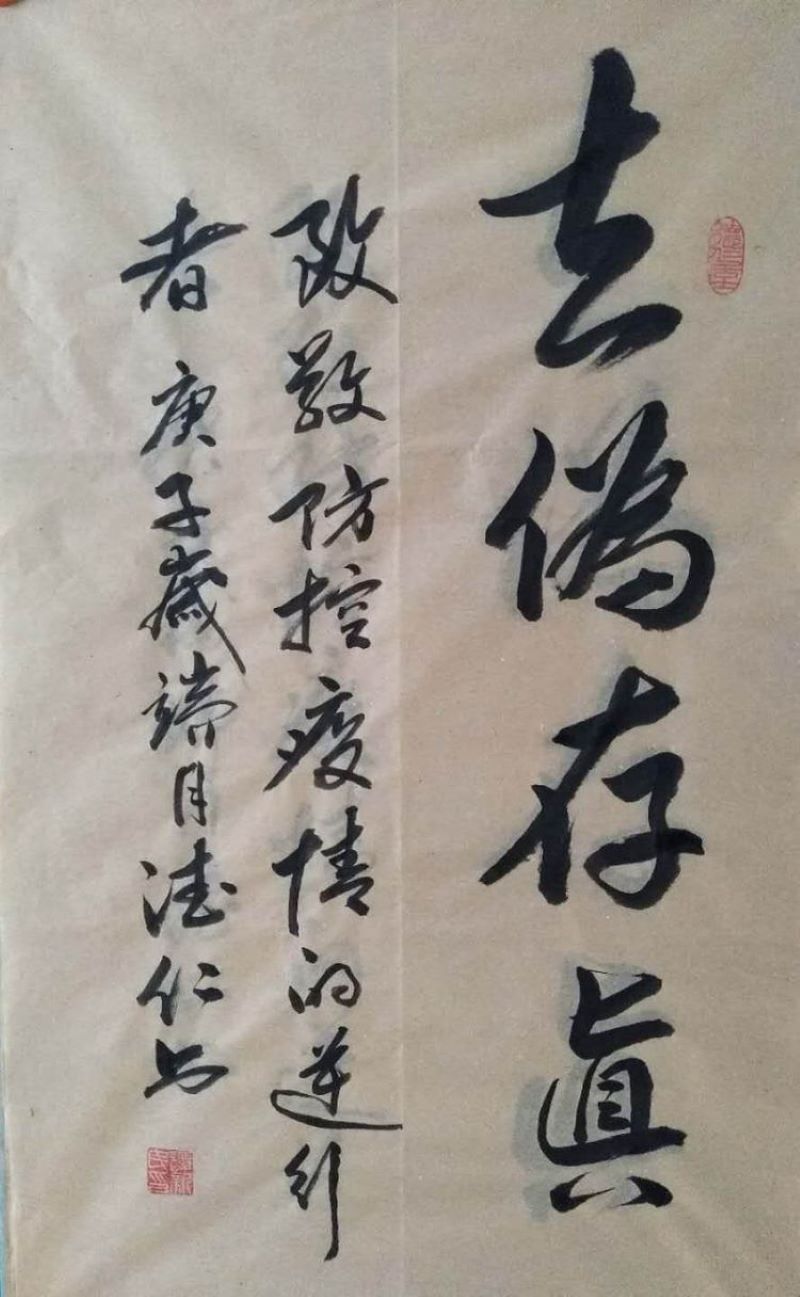 去偽存眞
致敬防控疫情的逆行
者庚子歲端月德仁书